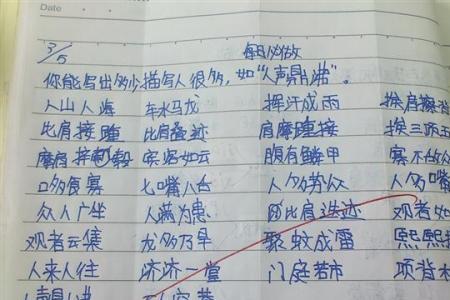 Date
3/5 每日必做
你能写出多少描写人很多,如"人声鼎沸"。
人山人海 车水马龙 挥汗成雨 挨肩擦
比肩接踵 比肩叠迹 肩摩踵接 挨三顶五
摩肩 毂 宾客如云 腹有鳞甲 寡不敌众
口多食寡 七嘴八台 人多势众 人多嘴
众人广坐 人满为患 比肩迭迹 观者如
观者云集 龙多乃旱 聚蚊成雷 熙熙
人来人往 济济一堂 门庭若市 项背
人声鼎沸 万人空巷